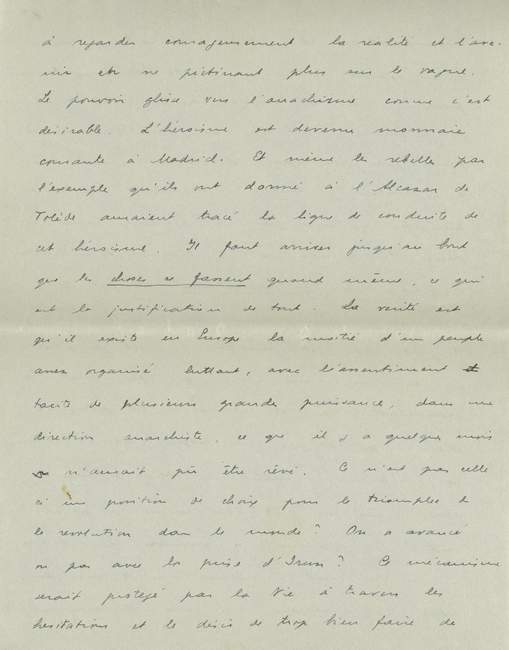 à regarder courageusement la realité et l'ave-
nir et ne pietinant plus sur le vague.
Le pouvoir glisse vers l'anachisme comme c'est
desirable. L'héroisme est devenu monnaie
courante à Madrid. Et même les rebelles par
l'exemple qu'ils ont donné à l'Alcazar de
Tolède auraient tracé la ligne de conduite de
cet héroisme. Il faut arriver jusqu'au bout
que les choses se fassent quand même, ce qui
est la justification de tout. La verité est
qu'il existe en Europe la moitié d'un peuple
assez organisé luttant, avec l'assentiment
tacite de plusieurs grandes puissances, dans une
direction anarchiste, ce que il y a quelques mois
n'aurait pû être rêvé. Ce n'est pas celle
ci une position de choix pour le triomphe de
la revolution dans le monde? On a avancé
ou pas avec la prise d'Irun? Ce mécanisme
serait protegé par la Vie à travers les
hesitations et le désir de trop bien faire de